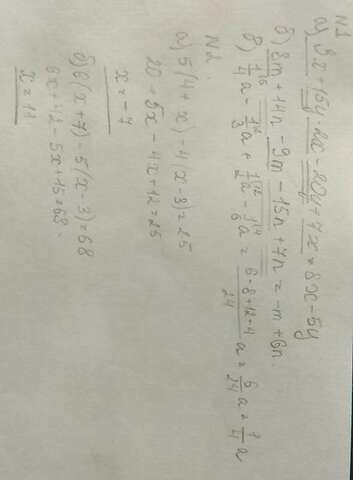 N1
а) 3x + 15y - 2x - 20y + 7x = 8x - 5y
б) 8m + 14n - 9m - 15n + 7n = -m + 6n.
в) 1/4 a - 1/3 a + 1/2 a - 1/6 a = 6 - 8 + 12 - 4 / 24 a = 6/24 a = 1/4 a
N2.
а) 5(4 + x) - 4(x - 3) = 25
20 + 5x - 4x + 12 = 25
x = -7
б) 6(x + 7) - 5(x - 3) = 68
6x + 42 - 5x + 15 = 68.
x = 11